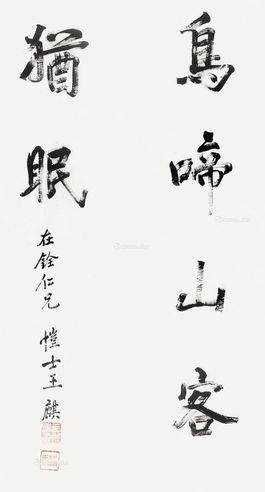 鳥啼山客
猶眠
在銓仁兄 愷士王麒